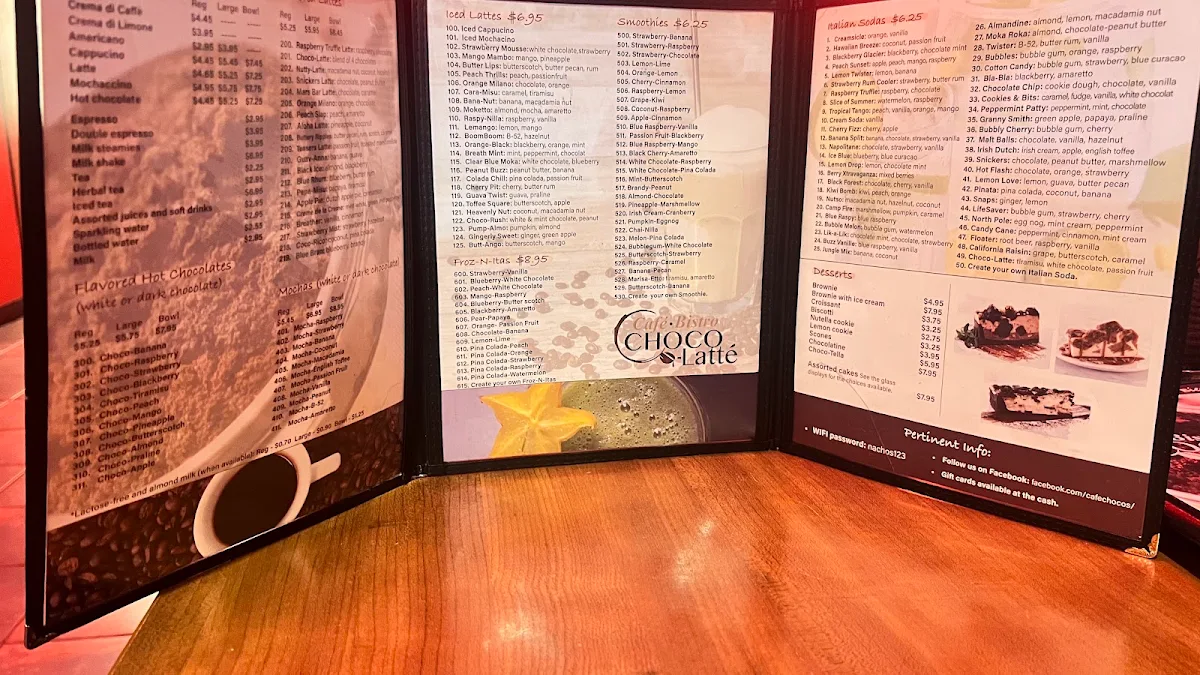 Crema di Caffè
Crema di Limone
Americano
Cappuccino
Latte
Mochaccino
Hot chocolate
Reg Large Bowl
$4.45
$3.95
$2.95 $3.95
$4.45 $5.45 $7.45
$4.65 $5.25 $7.25
$4.95 $5.75 $7.75
$4.45 $5.25 $7.25
Espresso $2.95
Double espresso $3.95
Milk steamies
Milk shake
Tea $2.25
Herbal tea
Iced tea
Assorted juices and soft drinks
Sparkling water
Bottled water
Milk $2.95
Flavored Hot Chocolates
(white or dark chocolate)
Reg Large Bowl
$5.25 $5.75 $7.95
300. Choco-Banana
301. Choco-Raspberry
302. Choco-Strawberry
303. Choco-Blackberry
304. Choco-Tiramisu
305. Choco-Peach
306. Choco-Mango
307. Choco-Pineapple
308. Choco-Butterscotch
309. Choco-Almond
310. Choco-Praline
311. Choco-Apple
*Lactose-free and almond milk (when available): Reg - $0.70 Large - $0.90 Bowl - $1.25
Reg Large Bowl
$5.25 $5.95 $8.75
200. Raspberry Truffle Latte: raspberry, chocolate
201. Choco-Latte: blend of 4 chocolates
202. Nutty-Latte: macadamia nut, coconut, hazelnut
203. Snickers Latte: chocolate, peanut butter
204. Mam Bar Latte: chocolate, caramel
205. Orange Milano: orange, chocolate
206. Peach Slap: peach, amaretto
207. Aloha Latte: pineapple, coconut
Mochas (white or dark chocolate)
Reg Large Bowl
$5.45 $5.95 $8.45
401. Mocha-Raspberry
402. Mocha-Strawberry
403. Mocha-Banana
404. Mocha-Coconut
405. Mocha-Macadamia
406. Mocha-English Toffee
407. Mocha-Passion Fruit
408. Mocha-Vanilla
409. Mocha-Peanut
410. Mocha-B-52
411. Mocha-Amaretto
Iced Lattes $6.95
100. Iced Cappucino
101. Iced Mochacino
102. Strawberry Mousse:white chocolate,strawberry
103. Mango Mambo: mango, pineapple
104. Butter Lips: butterscotch, butter pecan, rum
105. Peach Thrills: peach, passionfruit
106. Orange Milano: chocolate, orange
107. Cara-Misu: caramel, tiramisu
108. Bana-Nut: banana, macadamia nut
109. Moketto: almond, mocha, amaretto
110. Raspy-Nilla: raspberry, vanilla
111. Lemango: lemon, mango
112. BoomBoom: B-52, hazelnut
113. Orange-Black: blackberry, orange, mint
114. Breath Mint: mint, peppermint, chocolat
115. Clear Blue Moka: white chocolate, blueberry
116. Peanut Buzz: peanut butter, banana
117. Colada Chill: pina colada, passion fruit
118. Cherry Pit: cherry, butter rum
119. Guava Twist: guava, praline
120. Toffee Square: butterscotch, apple
121. Heavenly Nut: coconut, macadamia nut
122. Choco-Rush: white & mint chocolate, peanut
123. Pump-Almo: pumpkin, almond
124. Gingerly Sweet: ginger, green apple
125. Butt-Ango: butterscotch, mango
Froz-N-Itas $8.95
600. Strawberry-Vanilla
601. Blueberry-White Chocolate
602. Peach-White Chocolate
603. Mango-Raspberry
604. Blueberry-Butter scotch
605. Blackberry-Amaretto
606. Pear-Papaya
607. Orange- Passion Fruit
608. Chocolate-Banana
609. Lemon-Lime
610. Pina Colada-Peach
611. Pina Colada-Orange
612. Pina Colada-Strawberry
613. Pina Colada-Raspberry
614. Pina Colada-Watermelon
615. Create your own Froz-N-Itas
Smoothies $6.25
500. Strawberry-Banana
501. Strawberry-Raspberry
502. Strawberry-Chocolate
503. Lemon-Lime
504. Orange-Lemon
505. Cherry-Cinnamon
506. Raspberry-Lemon
507. Grape-Kiwi
508. Coconut-Raspberry
509. Apple-Cinnamon
510. Blue Raspberry-Vanilla
511. Passion Fruit-Blackberry
512. Blue Raspberry-Mango
513. Black Cherry-Amaretto
514. White Chocolate-Raspberry
515. White Chocolate-Pina Colada
516. Mint-Butterscotch
517. Brandy-Peanut
518. Almond-Chocolate
519. Pineapple-Marshmellow
520. Irish Cream-Cranberry
521. Pumpkin-Eggnog
522. Chai-Nilla
523. Melon-Pina Colada
524. Bubblegum-White Chocolate
525. Butterscotch-Strawberry
526. Raspberry-Caramel
527. Banana-Pecan
528. Marisa-Etto: tiramisu, amaretto
529. Butterscotch-Banana
530. Create your own Smoothie.
Café·Bistro
CHOCO
Latté
Italian Sodas $6.25
1. Creamsicle: orange, vanilla
2. Hawaiian Breeze: coconut, passion fruit
3. Blackberry Glacier: blackberry, chocolate mint
4. Peach Sunset: apple, peach, mango, raspberry
5. Lemon Twister: lemon, banana
6. Strawberry Rum Cooler: strawberry, butter rum
7. Raspberry Truffle: raspberry, chocolate
8. Slice of Summer: watermelon, raspberry
9. Tropical Tango: peach, vanilla, orange, mango
10. Cream Soda: vanilla
11. Cherry Fizz: cherry, apple
12. Banana Split: banana, chocolate, strawberry, vanilla
13. Napolitana: chocolate, strawberry, vanilla
14. Ice Blue: blueberry, blue curacao
15. Lemon Drop: lemon, chocolate mint
16. Berry Xtravaganza: mixed berries
17. Black Forest: chocolate, cherry, vanilla
18. Kiwi Bomb: kiwi, peach, orange
19. Nutso: macadamia nut, hazelnut, coconut
20. Camp Fire: marshmellow, pumpkin, caramel
21. Blue Raspy: blue raspberry
22. Bubble Melon: bubble gum, watermelon
23. Lik-a-Lik: chocolate mint, chocolate, strawberry
24. Buzz Vanille: blue raspberry, vanilla
25. Jungle Mix: banana, coconut
26. Almandine: almond, lemon, macadamia nut
27. Moka Roka: almond, chocolate-peanut butter
28. Twister: B-52, butter rum, vanilla
29. Bubbles: bubble gum, orange, raspberry
30. Cotton Candy: bubble gum, strawberry, blue curacao
31. Bla-Bla: blackberry, amaretto
32. Chocolate Chip: cookie dough, chocolate, vanilla
33. Cookies & Bits: caramel, fudge, vanilla, white chocolat
34. Peppermint Patty: peppermint, mint, chocolate
35. Granny Smith: green apple, papaya, praline
36. Bubbly Cherry: bubble gum, cherry
37. Malt Balls: chocolate, vanilla, hazelnut
38. Irish Dutch: irish cream, apple, english toffee
39. Snickers: chocolate, peanut butter, marshmellow
40. Hot Flash: chocolate, orange, strawberry
41. Lemon Love: lemon, guava, butter pecan
42. Pinata: pina colada, coconut, banana
43. Snaps: ginger, lemon
44. LifeSaver: bubble gum, strawberry, cherry
45. North Pole: egg nog, mint cream, peppermint
46. Candy Cane: peppermint, cinnamon, mint cream
47. Floater: root beer, raspberry, vanilla
48. California Raisin: grape, butterscotch, caramel
49. Choco-Latte: tiramisu, white chocolate, passion fruit
50. Create your own Italian Soda.
Desserts
Brownie $4.95
Brownie with ice cream $7.95
Croissant $3.75
Biscotti $3.25
Nutella cookie $2.75
Lemon cookie $3.25
Scones $3.95
Chocolatine $5.95
Choco-Tella $7.95
Assorted cakes See the glass
displays for the choices available.
$7.95
Pertinent Info:
• WIFI password: nachos123
• Follow us on Facebook: facebook.com/cafechocos/
• Gift cards available at the cash.